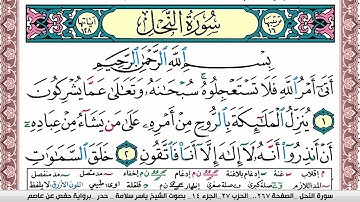 سُورَةُ النَّحْلِ
بِسْمِ ٱللَّهِ ٱلرَّحْمَٰنِ ٱلرَّحِيمِ
أَتَىٰٓ أَمْرُ ٱللَّهِ فَلَا تَسْتَعْجِلُوهُ ۚ سُبْحَٰنَهُۥ وَتَعَٰلَىٰ عَمَّا يُشْرِكُونَ
١ يُنَزِّلُ ٱلْمَلَٰٓئِكَةَ بِٱلرُّوحِ مِنْ أَمْرِهِۦ عَلَىٰ مَن يَشَآءُ مِنْ عِبَادِهِۦٓ
أَنْ أَنذِرُوٓا۟ أَنَّهُۥ لَآ إِلَٰهَ إِلَّآ أَنَا۠ فَٱتَّقُونِ ٢ خَلَقَ ٱلسَّمَٰوَٰتِ
سورة النحل الصفحة ٢٦٧ الحزب ٢٧ الجزء ١٤ بصوت الشيخ ياسر سلامة حدر برواية حفص عن عاصم